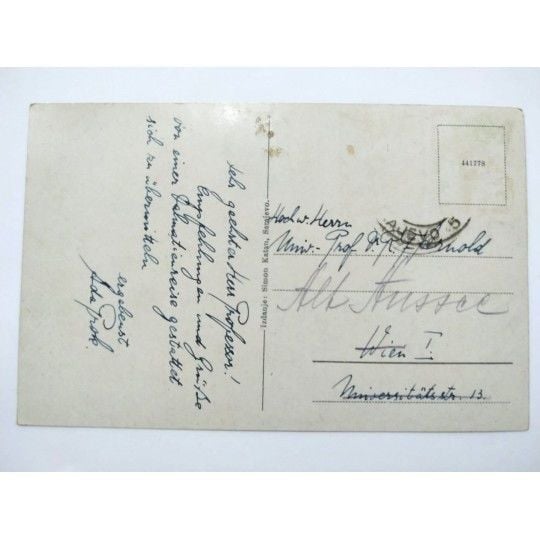 Sehr geehrter Herr Professor!
Empfehlungen und Grüße
von einer Dalmatienreise gestattet
sich zu übermitteln
ergebenst
Ada
Izdanje: Simon Katan, Sarajevo.
441778
Hochw. Herrn
Univ. Prof. Dr.
Alt Aussee
Wien I.
Universitätsstr. 13.